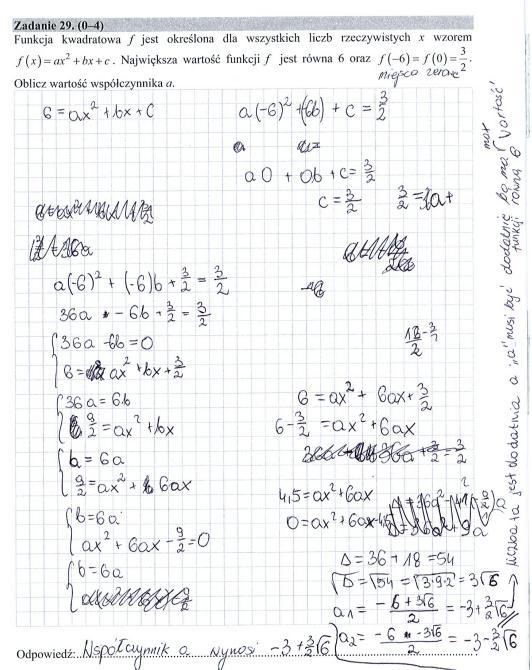 Zadanie 29. (0–4)
Funkcja kwadratowa f jest określona dla wszystkich liczb rzeczywistych x wzorem
f(x) = ax² + bx + c. Największa wartość funkcji f jest równa 6 oraz f(−6) = f(0) = 3/2.
miejsca zerowe
Oblicz wartość współczynnika a.
6 = ax² + bx + c
a(-6)² + (6b) + c = 3/2
a
a0 + 0b + c = 3/2
c = 3/2
a(-6)² + (-6)b + 3/2 = 3/2
36a - 6b + 3/2 = 3/2
36a - 6b = 0
6 = ax² + bx + 3/2
36a = 6b
9/2 = ax² + bx
b = 6a
9/2 = ax² + 6ax
b = 6a
ax² + 6ax - 9/2 = 0
b = 6a
6 = ax² + 6ax + 3/2
6 - 3/2 = ax² + 6ax
4,5 = ax² + 6ax
0 = ax² + 6ax - 4,5
Δ = 36 + 18 = 54
√Δ = √54 = √3·9·2 = 3√6
a₁ = (-6 + 3√6)/2 = -3 + 3/2√6
a₂ = (-6 - 3√6)/2 = -3 - 3/2√6
liczba ta jest dodatnia a "a" musi być dodatnie bo ma max wartość funkcji równą 6
Odpowiedź: Współczynnik a wynosi -3 + 3/2√6